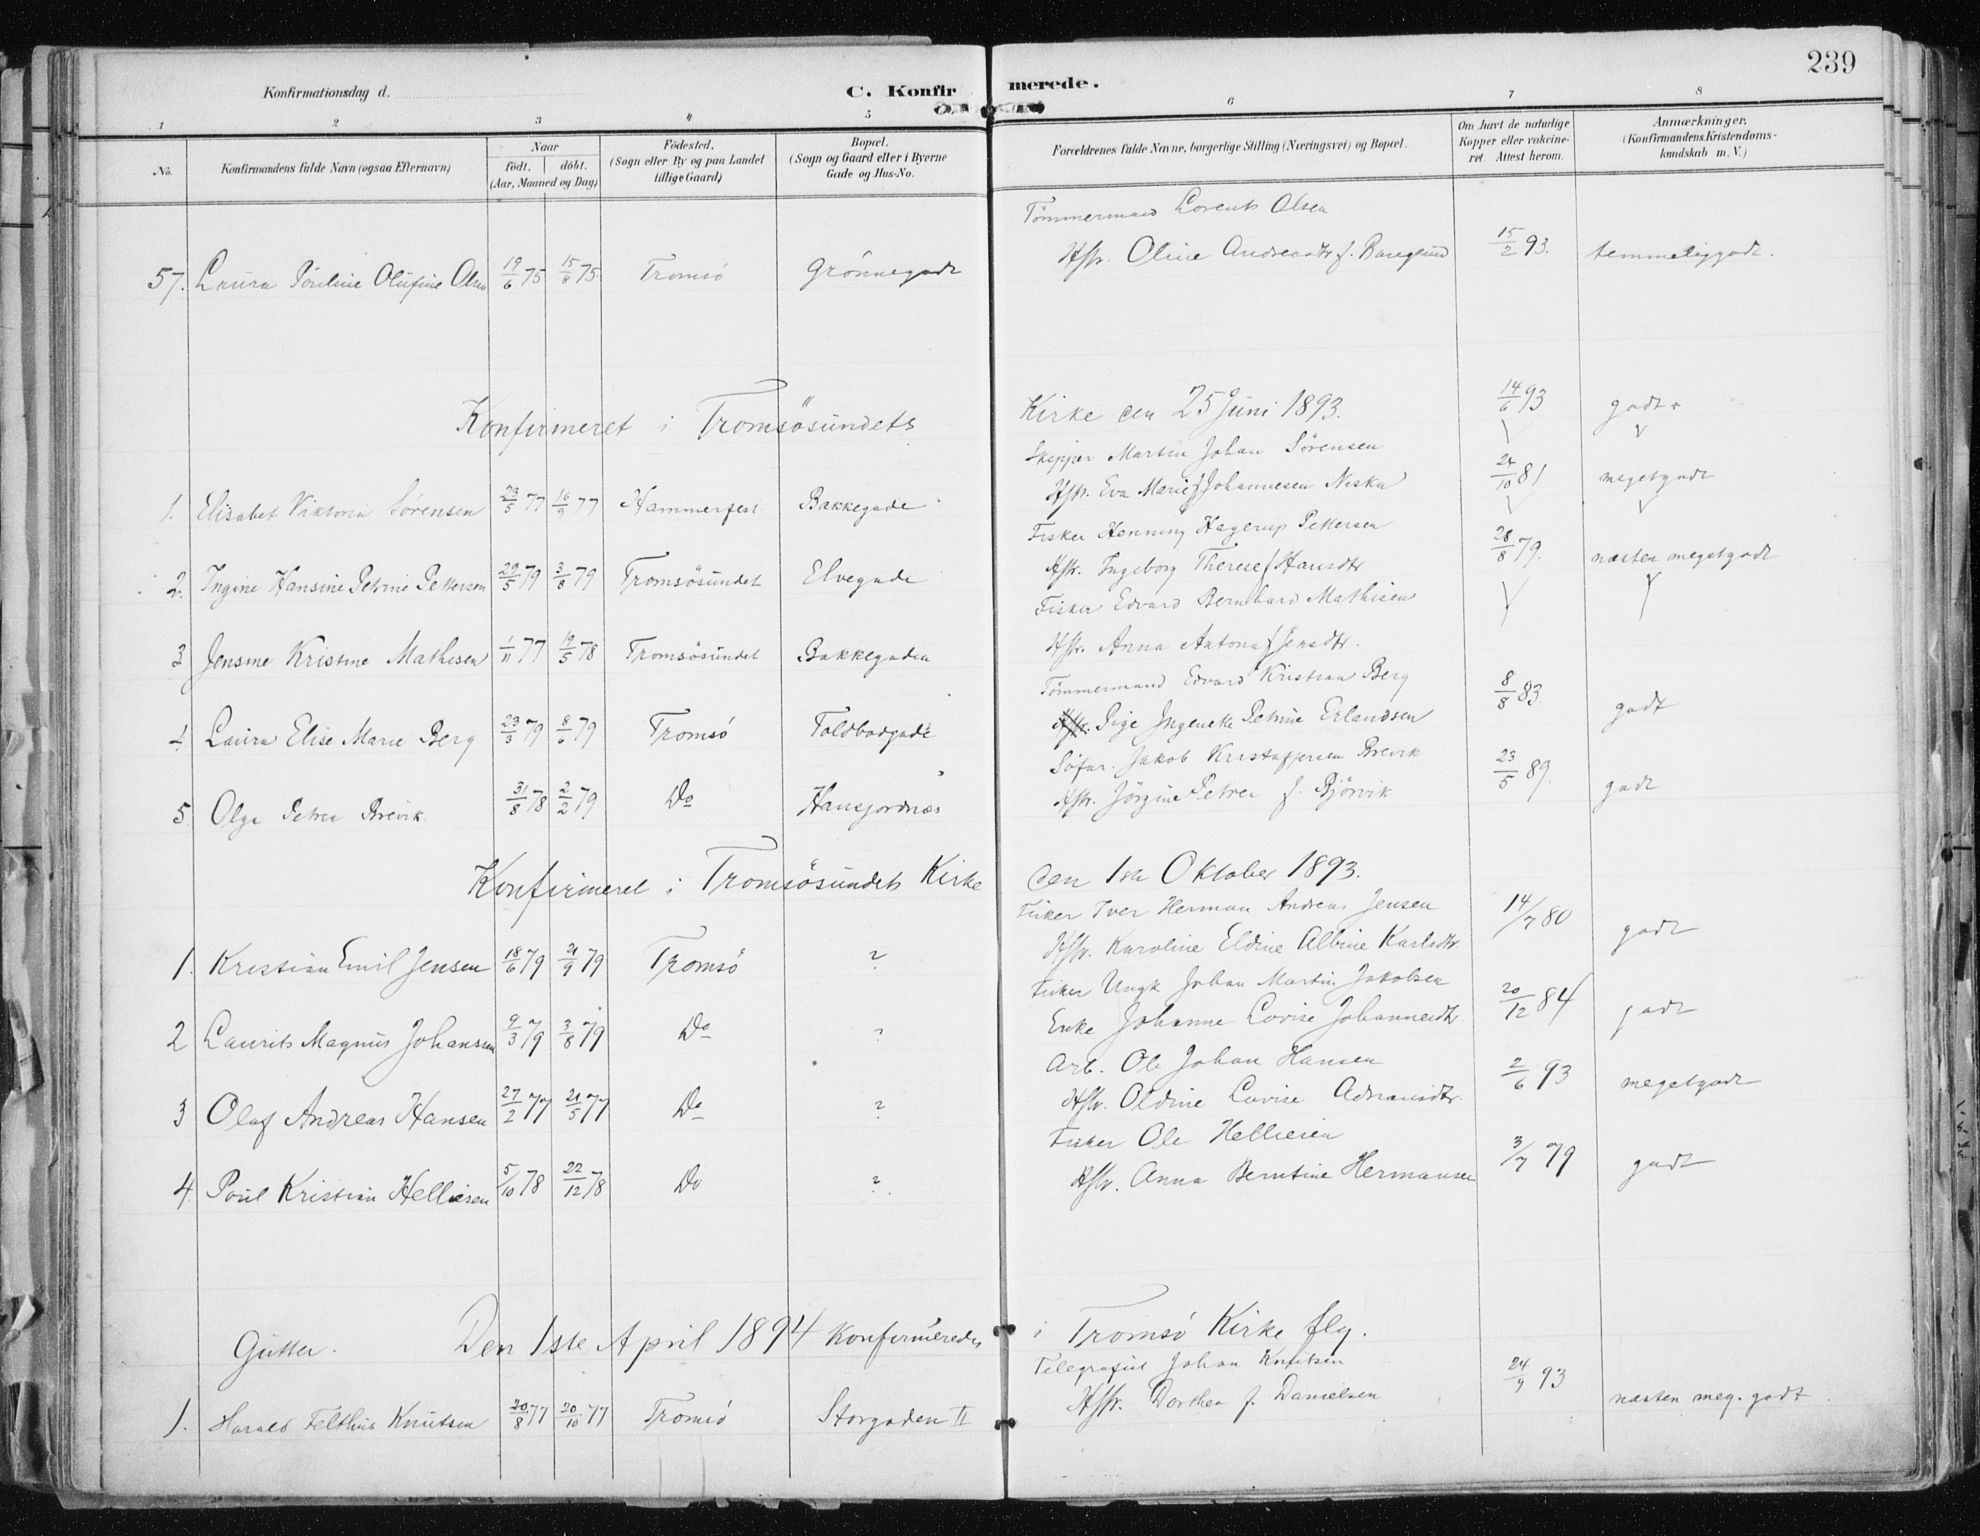 239
Konfirmationsdag d. C. Konfirmerede.
1 2 3 4 5 6 7 8
No. Konfirmandens fulde Navn (ogsaa Efternavn) Naar født. døbt. (Aar, Maaned og Dag) Fødested. (Sogn eller By og paa Landet tillige Gaard) Bopæl. (Sogn og Gaard eller i Byerne Gade og Hus-No. Forældrenes fulde Navne, borgerlige Stilling (Næringsvei) og Bopæl. Om havt de naturlige Kopper eller vakcineret. Attest herom. Anmærkninger. (Konfirmandens Kristendomskundskab m. V.)
Tömmermand Lorents Olsen
57. Laura Pouline Olufine Olsen 19/6 75 15/8 75 Tromsö Grönnegade Hstr. Oline Andreasdtr f. 15/2 93. temmeliggodt.
Konfirmeret i Tromsösundets Kirke den 25 Juni 1893. 14/6 93 godt
Skipper Martin Johan Sörensen
1. Elisabet Viktoria Sörensen 23/5 77 16/9 77 Hammerfest Bakkegade Hstr. Eva Marie f Johannesen Niska 24/10 81 megetgodt
Fisker Henning Hagerup Pettersen
2. Ingine Hansine Petrine Pettersen 29/5 79 3/8 79 Tromsösundet Elvegade Hstr. Ingeborg Therese f Hansdtr 28/8 79. næsten megetgodt
Fisker Edvard Bernhard Mathisen
3 Jensine Kristine Mathisen 1/11 77 19/5 78 Tromsösundet Bakkegaden Hstr. Anna Antona f Jensdtr.
Tömmermand Edvard Kristian Berg
4. Laura Elise Marie Berg 23/3 79 8/6 79 Tromsö Toldbodgade Pige Ingeneke Petrine Erlandsen 8/8 83. godt
Söfar. Jakob Kristoffersen Brevik
5. Olga Petrea Brevik 31/8 78 2/2 79 Do Hansjordnæs Hstr. Jörgine Petrea f. Björvik 23/5 89. godt
Konfirmeret i Tromsösundets Kirke den 1ste Oktober 1893.
Fisker Iver Herman Andreas Jensen
1. Kristian Emil Jensen 18/6 79 21/9 79 Tromsö ? Hstr. Karoline Eldine Albine Karlsdtr. 14/7 80 godt
Fisker Ungk Johan Martin Jakobsen
2 Laurits Magnus Johanssen 9/3 79 3/8 79 Do ? Enke Johanne Lovise Johannesdtr 20/12 84 godt
Arb. Ole Johan Hansen
3 Olaf Andreas Hansen 27/2 77 21/5 77 Do ? Hstr. Oldine Lovise Adriansdtr. 2/6 93 megetgodt
Fisker Ole Helliesen
4. Poul Kristian Helliesen 5/10 78 22/12 78 Do ? Hstr. Anna Berntine Hermansen 3/7 79 godt
Gutter. Den 1ste April 1894 Konfirmeredes i Tromsö Kirke flg.
Telegrafist Johan Knutsen
1. Harald Felthus Knutsen 20/8 77 20/10 77 Tromsö Storgaden II Hstr. Dorthea f. Danielsen 24/9 93 næsten meg. godt